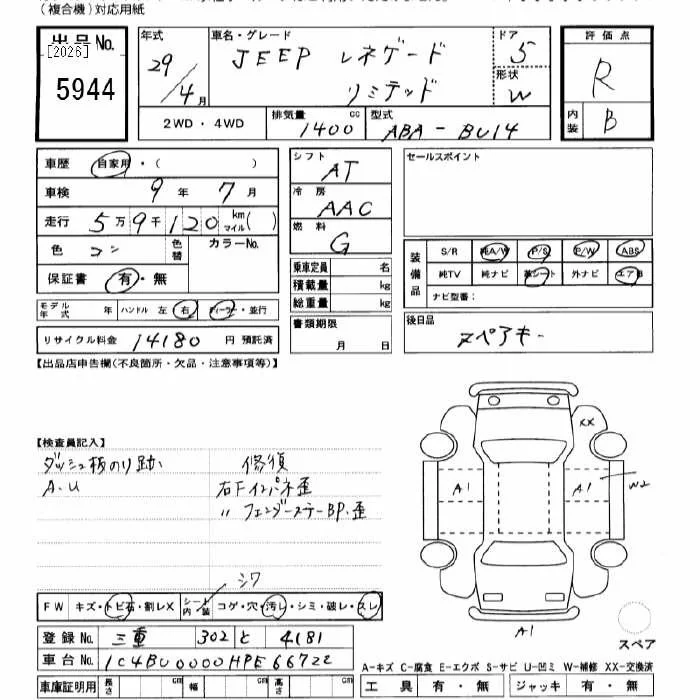 (複合機)対応用紙
出品No.
[2026]
5944
年式 29/4月
車名・グレード JEEP レネゲード リミテッド
ドア 5
形状 W
2WD・4WD
排気量 1400 cc
型式 ABA-BU14
評価点 R
内装 B
車歴 自家用・( )
車検 9年 7月
走行 5万9千120 km マイル( )
色 コン 色替 カラーNo.
保証書 有・無
モデル年式 年 ハンドル 左 右 ディーラー・並行
リサイクル料金 14180 円 預託済
シフト AT
冷房 AAC
燃料 G
乗車定員 名
積載量 kg
総重量 kg
書類期限 月 日
セールスポイント
装備品 S/R 純A/W P/S P/W ABS
純TV 純ナビ 革シート 外ナビ エアB
ナビ型番:
後日品 スペアキー
【出品店申告欄(不良箇所・欠品・注意事項等)】
【検査員記入】
ダッシュ板のり跡 修復
A.U 右Fインパネ歪
〃 フェンダーステーBP.歪
シワ
FW キズ・トビ石・割レX シート内装 コゲ・穴・汚レ・シミ・破レ・スレ
登録No. 三重 302 と 4181
車台No. 1C4BU0000HPE66722
車庫証明用 長さ cm 幅 cm 高さ cm
XX
A1
A1
W2
A1
スペア
A-キズ C-腐食 E-エクボ S-サビ U-凹ミ W-補修 XX-交換済
工具 有・無 ジャッキ 有・無